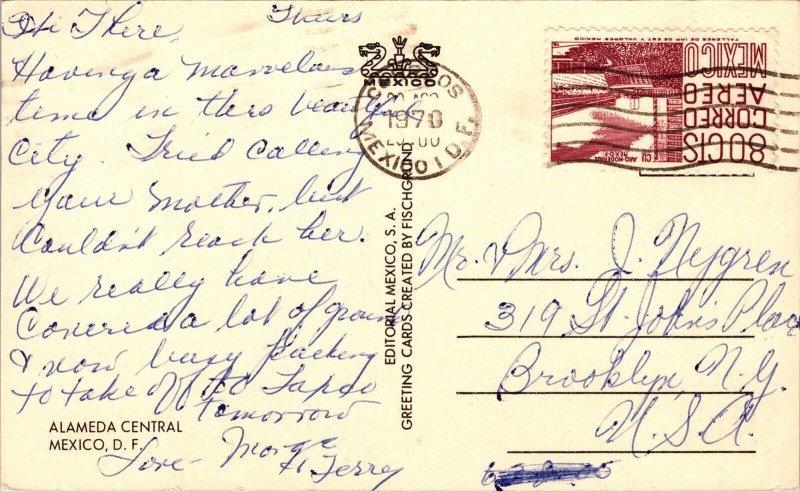 Hi There, Thurs
Having a marvelous
time in this beautiful
City. Tried calling
your mother, but
couldn't reach her.
We really have
covered a lot of ground
& now busy packing
to take off to Taxco
tomorrow
Love - Marge
& Jerry
ALAMEDA CENTRAL
MEXICO, D. F.
EDITORIAL MEXICO, S. A.
GREETING CARDS CREATED BY FISCHGRUND
MEXICO
CORREOS
AGO
1970
MEXICO 1 D.F.
TALLERES DE IMP. DE EST. Y VALORES-MEXICO
MEXICO
AEREO
CORREO
80CTS
ARQ. MODERNA
MEXICO D.F.
CU
Mr. & Mrs. J. Nygren
319 St. Johns Place
Brooklyn N.Y.
U.S.A.